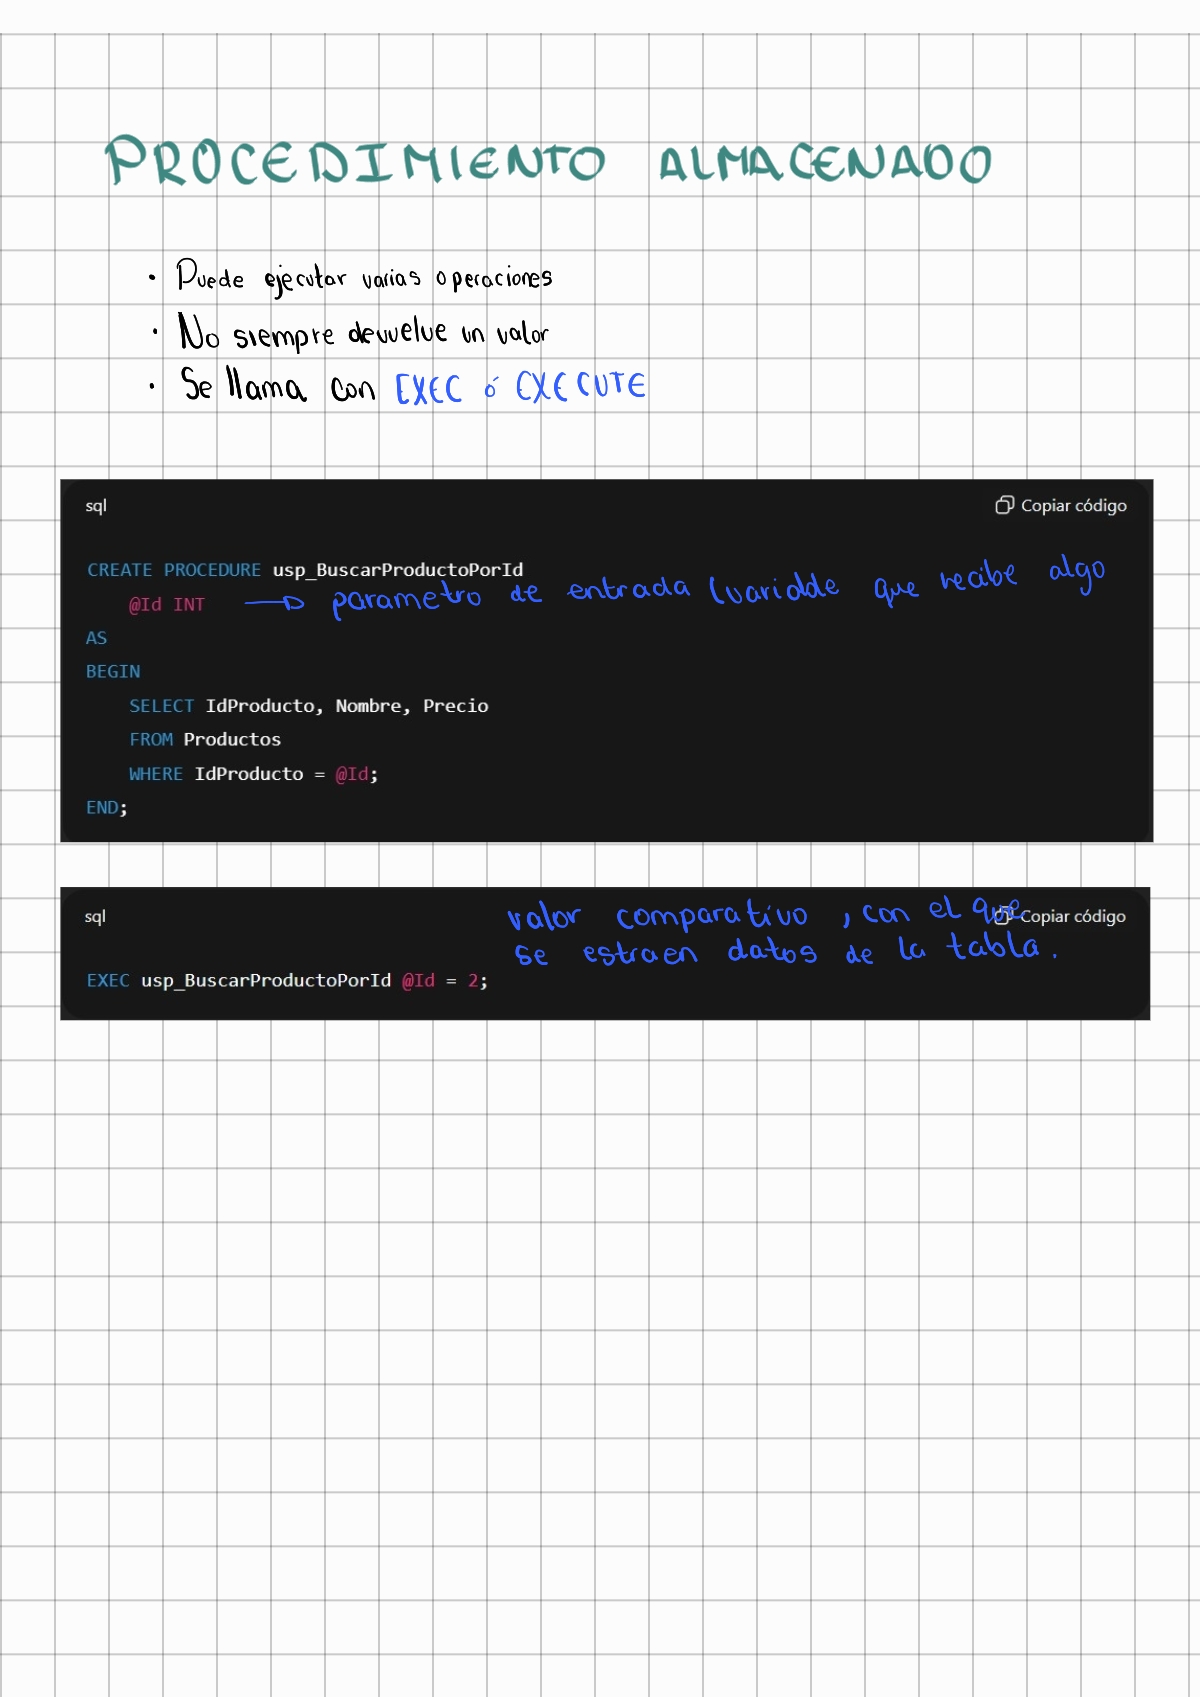 PROCEDIMIENTO ALMACENADO
· Puede ejecutar varias operaciones
· No siempre devuelve un valor
· Se llama con EXEC ó EXECUTE
sql Copiar código
CREATE PROCEDURE usp_BuscarProductoPorId
@Id INT → parametro de entrada (variable que recibe algo
AS
BEGIN
SELECT IdProducto, Nombre, Precio
FROM Productos
WHERE IdProducto = @Id;
END;
sql valor comparativo, con el que Copiar código
se estraen datos de la tabla.
EXEC usp_BuscarProductoPorId @Id = 2;